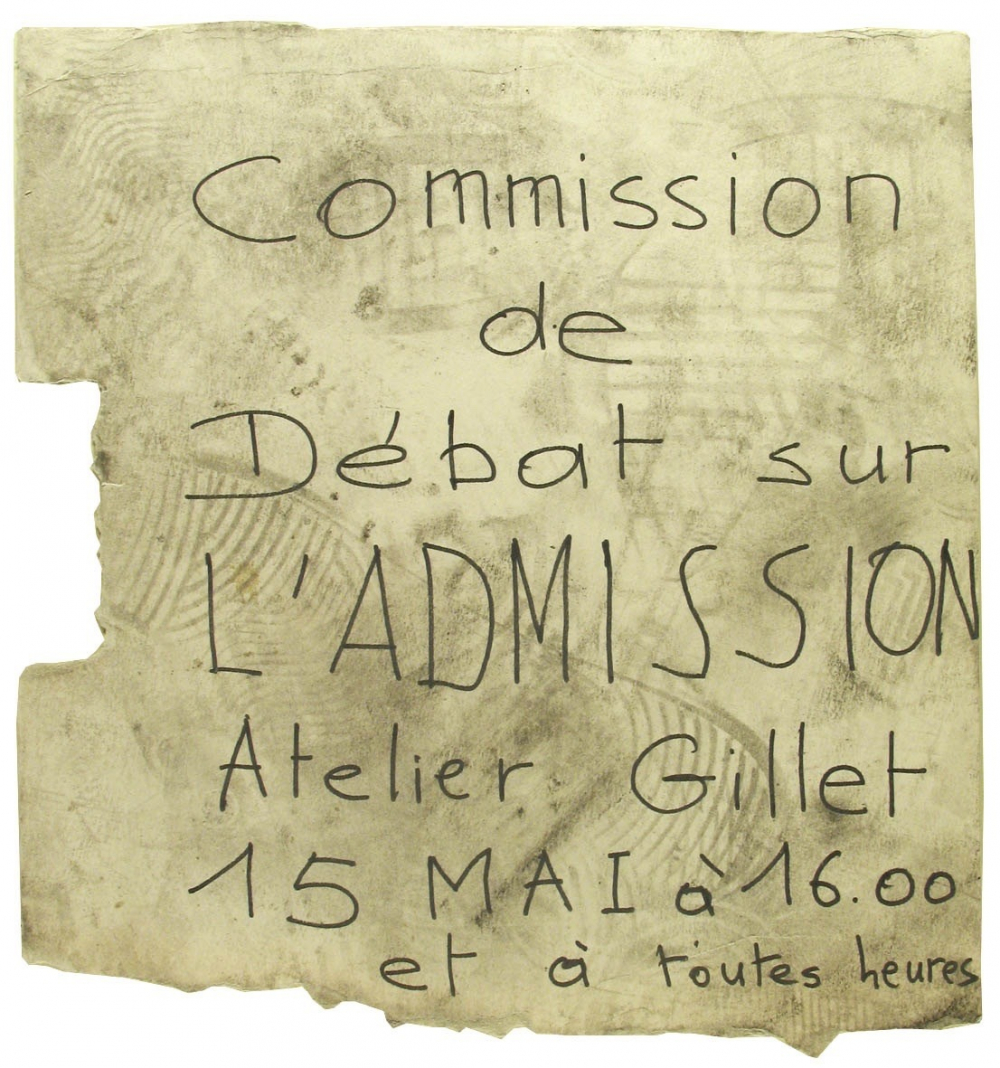 Commission
de
Débat sur
L'ADMISSION
Atelier Gillet
15 MAI à 16.00
et à toutes heures